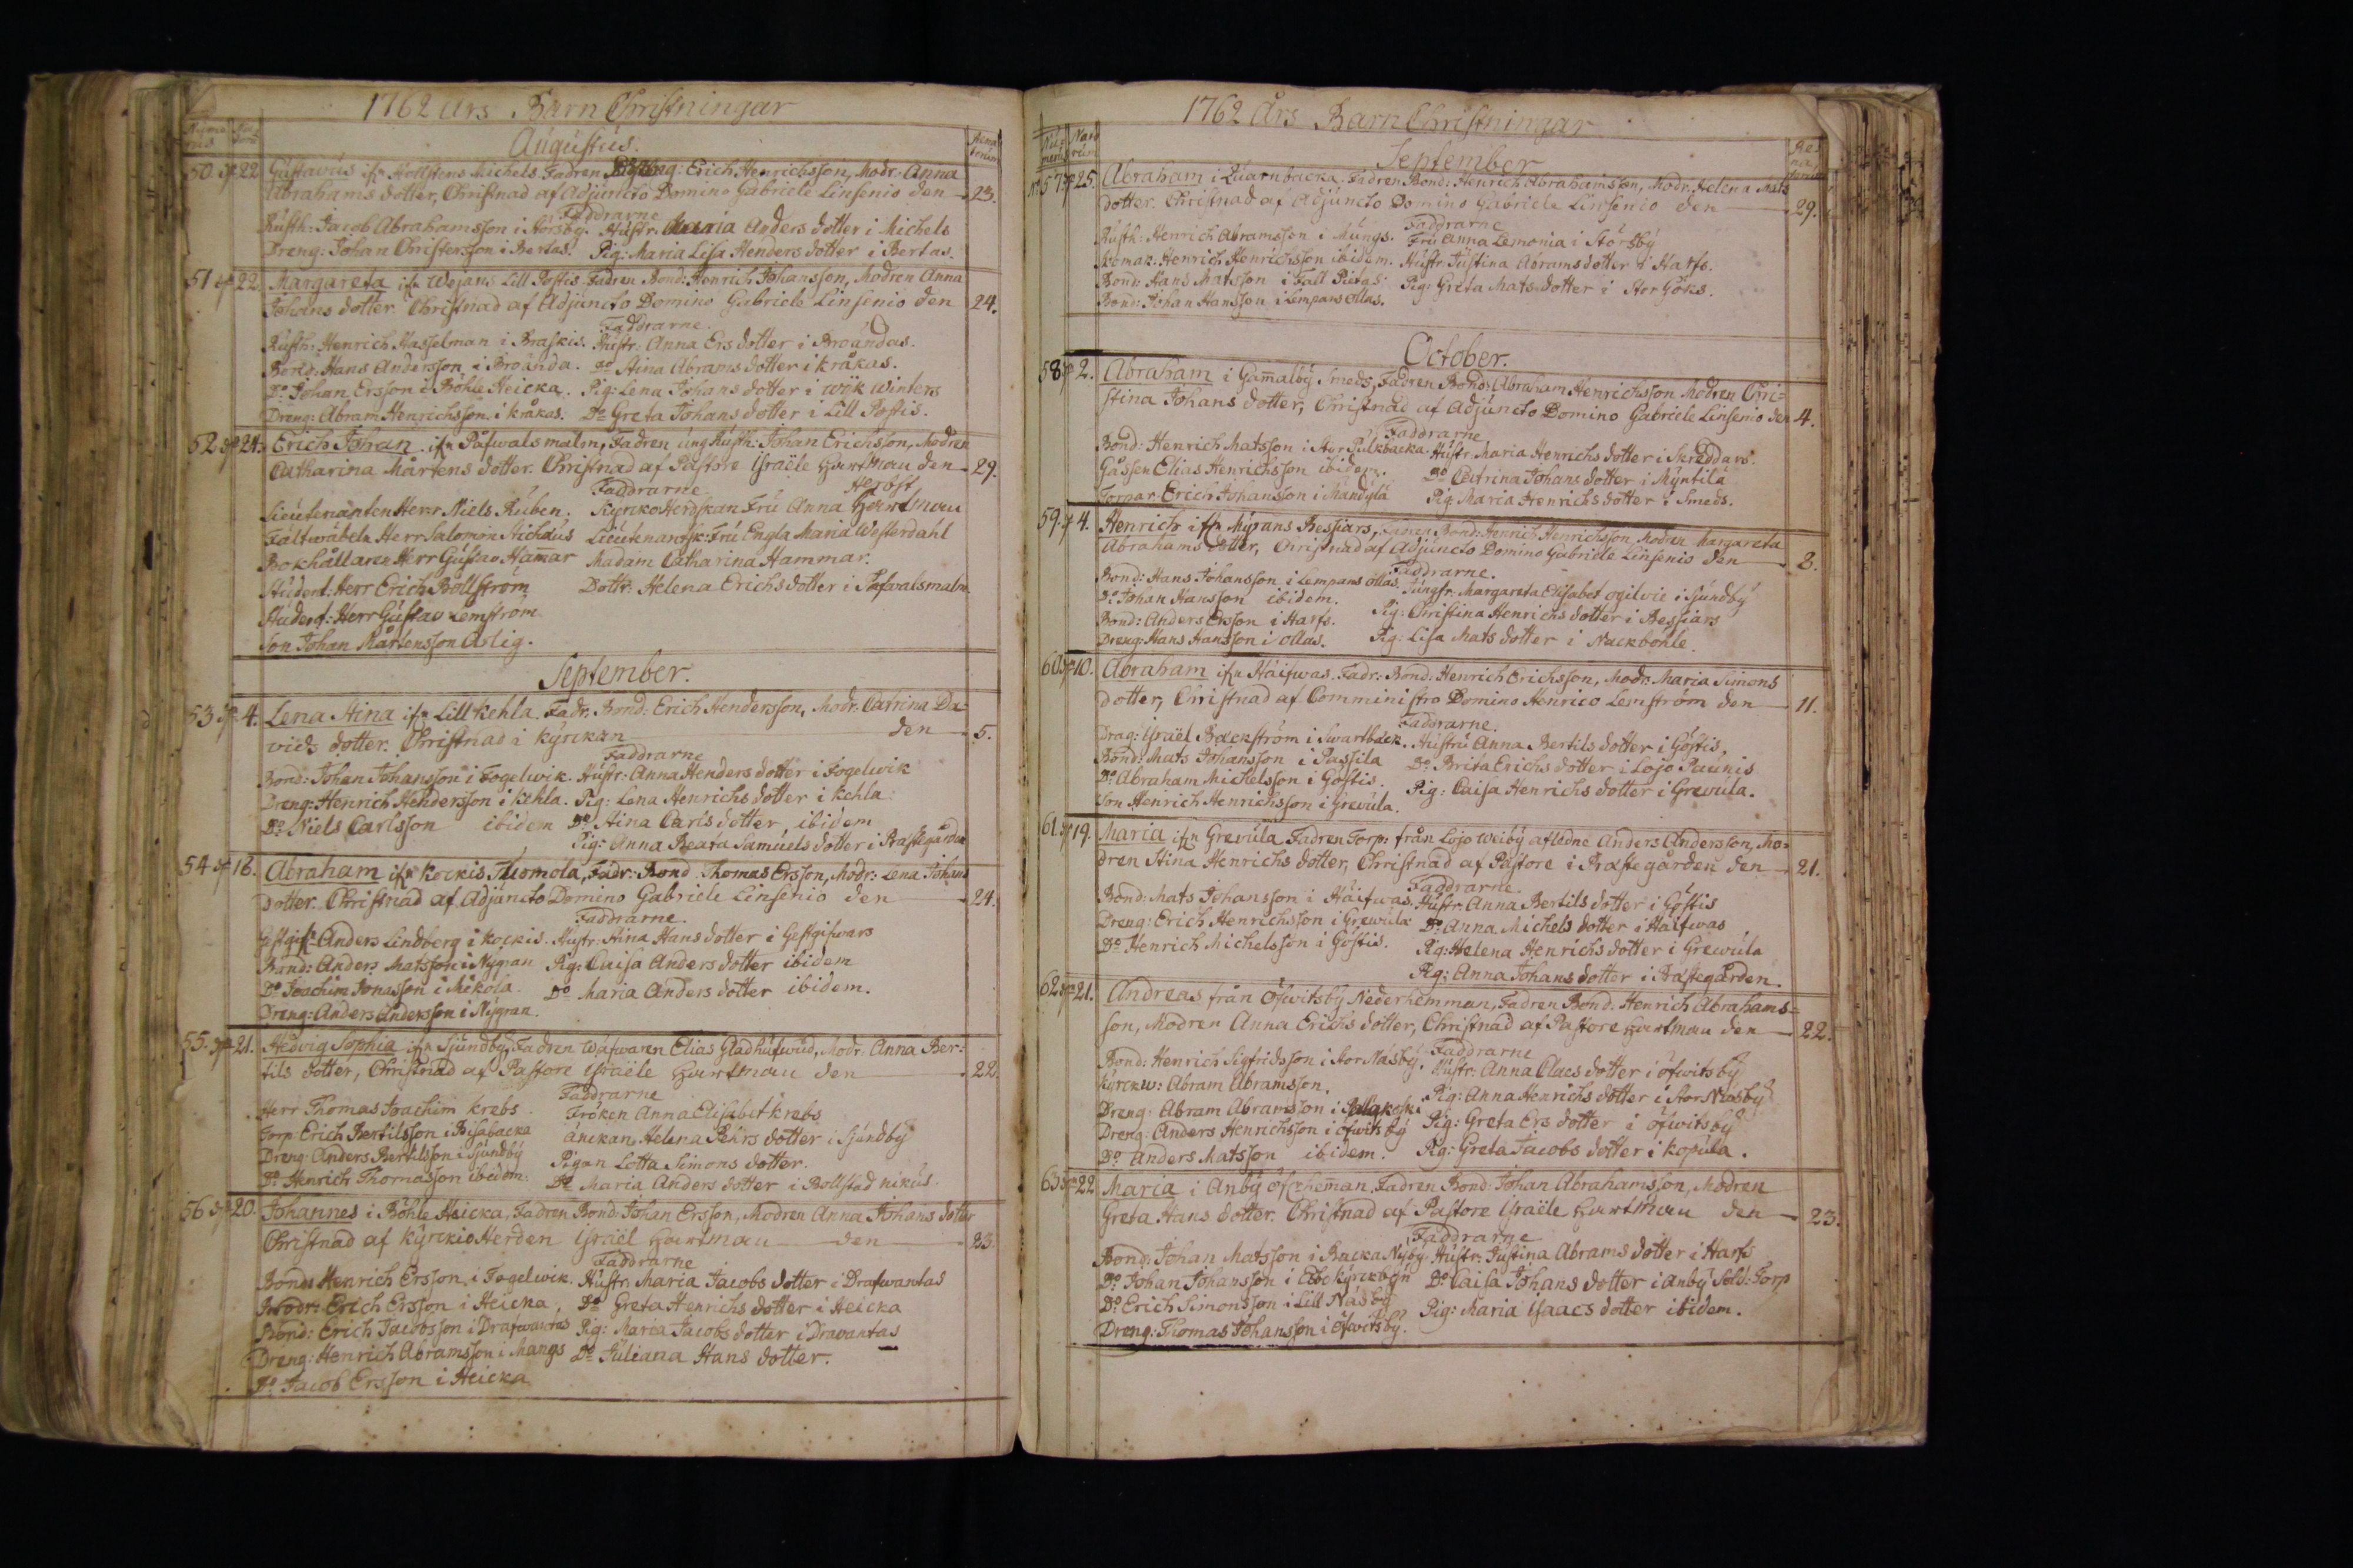 1762 Års Barn Christningar
Augustus.
50. 22 Gustavus ifr Hollstens Michels. Fadren Erich Henrichsson, Modr: Anna
Abrahams dotter, Christnad af Adjuncto Domino Gabriele Linsenio den 23.
Faddrarne
Rusth: Jacob Abrahamsson i Störsby. Hustr. Maria Anders dotter i Michels
Dreng: Johan Christersson i Bertas. Pig: Maria Lisa Henders dotter i Bertas.
51 22. Margareta ifr Wejans Lill Postis. Fadren Bond: Henrich Johansson, Modren Anna
Johans dotter. Christnad af Adjuncto Domino Gabriele Linsenio den 24.
Faddrarne.
Rusth: Henrich Hasselman i Braskis. Hustr: Anna Ers dotter i Broändas.
Bond: Hans Andersson i Broända. Do Stina Abrams dotter i kråkas.
Do Johan Ersson i Böhle Heicka. Pig: Lena Johans dotter i wik winters
Dreng: Abram Henrichsson i kråkas. Do Greta Johans dotter i Lill Postis.
52 24. Erich Johan ifr Påfwalsmalm, Fadren ung Rusth: Johan Erichsson, Modren
Catharina Mårtens dotter. Christnad af Pastore Israële Hartman den 29.
Faddrarne
Lieutenanten Herr Niels Ruben. Kyrko Herdskan Fru Anna Hartman
Fältwäbeln Herr Salomon Lieutnantsk: Fru Engla Maria Westerdahl
Bokhållaren Herr Gustav Ham̄ar Madam Catharina Hammar.
Student: Herr Erich Bollström Dottr: Helena Erichs dotter i Påfwalsmalm
Student: Herr Gustav Lemström
Son Johan Mårtensson Aslig.
September.
53 4. Lena Stina ifr Lill Kehla. Fadr. Bond: Erich Hendersson, Modr: Catrina Da:
vids dotter. Christnad i kyrckan den 5.
Faddrarne
Bond: Johan Johansson i Fogelwik. Hustr: Anna Henders dotter i Fogelwik
Dreng: Henrich Hendersson i Kehla. Pig: Lena Henrichs dotter i Kehla
Do Niels Carlsson ibidem Do Stina Carls dotter ibidem
Pig: Anna Beata Samuels dotter i Prästegården
54 16. Abraham ifr Kockis Thomola, Fadr: Bond Thomas Ersson, Modr: Lena Johans
dotter. Christnad af Adjuncto Domino Gabriele Linsenio den 24.
Faddrarne.
Gestgif: Anders Lindberg i Kockis. Hustr: Stina Hans dotter i Gestgifwars
Bond: Anders Matsson i Nygran Pig: Caisa Anders dotter ibidem
Do Joachim Jonasson i Mikola. Do Maria Anders dotter ibidem.
Dreng: Anders Andersson i Nygran.
55. 21. Hedvig Sophia ifr Sjundby, Fadren Wäfwaren Elias Gladhufwud, Modr: Anna Ber:
tils dotter, Christnad af Pastore Israële Hartman den 22.
Faddrarne
Herr Thomas Joachim Krebs. Fröken Anna Elisabet Krebs
Torp: Erich Bertilsson i Bisabacka änckan Helena Pehrs dotter i Sjundby
Dreng: Anders Bertilsson i Sjundby Pigan Lotta Simons dotter.
Do Henrich Thomasson ibidem. Do Maria Anders dotter i Bollstad nikus.
56 20. Johannes i Böhle Heicka, Fadren Bond: Johan Ersson, Modren Anna Johans dotter
Christnad af Kyrckio Herden Israël Hartman den 23.
Faddrarne
Bond: Henrich Ersson i Fogelwik. Hustr: Maria Jacobs dotter i Drafwantas
Brodr: Erich Ersson i Heicka, Do Greta Henrichs dotter i Heicka
Bond: Erich Jacobsson i Drafwantas Pig: Maria Jacobs dotter i Dravantas
Dreng: Henrich Abramsson i Mangs Do Juliana Hans dotter.
Do Jacob Ersson i Heicka
1762 Års Barn Christningar
September
No 57 25. Abraham i Quarnbacka. Fadren Bond: Henrich Abrahamsson, Modr: Helena Mats
dotter. Christnad af Adjuncto Domino Gabriele Linsenio den 29.
Faddrarne
Rusth: Henrich Abramsson i Mungs. Fru Anna Lemonia i Störsby
Skomak: Henrich Henrichsson ibidem. Hustr: Justina Abrams dotter i Harfs.
Bond: Hans Matsson i Fall Pietas. Pig: Greta Mats dotter i Stor Göks.
Bond: Johan Hansson i Lempans ollas.
October.
58 2. Abraham i Gam̄alby Smeds, Fadren Bond: Abraham Henrichsson Modren Chri=
stina Johans dotter, Christnad af Adjuncto Domino Gabriele Linsenio den 4.
Faddrarne
Bond: Henrich Matsson i Stor Pulkbacka. Hustr: Maria Henrichs dotter i Skreddars.
Gåssen Elias Henrichsson ibidem. Do Catrina Johans dotter i Myntilä
Torpar: Erich Johansson i Mandyla Pig: Maria Henrichs dotter i Smeds.
59. 4. Henrich ifr Myrans Bessiars, Fadren Bond: Henrich Henrichsson Modren Margareta
Abrahams dotter, Christnad af Adjuncto Domino Gabriele Linsenio den 8.
Faddrarne.
Bond: Hans Johansson i Lempans ollas. Jungfr: Margareta Elisabet ogilvie i Sjundby
Do Johan Hansson ibidem. Pig: Christina Henrichs dotter i Bessiars
Bond: Anders Ersson i Harfs. Pig: Lisa Mats dotter i Nackböhle.
Dreng: Hans Hansson i ollas.
60 10. Abraham ifr Häifwas. Fadr: Bond: Henrich Erichsson, Modr: Maria Simons
dotter, Christnad af Comministro Domino Henrico Lemström den 11.
Faddrarne.
Drag: Israël Backström i Swartbäck. Hustru Anna Bertils dotter i Göstis.
Bond: Mats Johansson i Passila Do Brita Erichs dotter i Lojo Paunis
Do Abraham Michelsson i Göstis. Pig: Caisa Henrichs dotter i Grevula.
Son Henrich Henrichsson i Grevula.
61. 19. Maria ifr Grevula, Fadren Torp: från Lojo Weiby afledne Anders Andersson, Mo=
dren Stina Henrichs dotter, Christnad af Pastore i Prästegården den 21.
Faddrarne.
Bond: Mats Johansson i Häifwas. Hustr: Anna Bertils dotter i Göstis
Dreng: Erich Henrichsson i Grewula Do Anna Michels dotter i Häifwas
Do Henrich Michelsson i Göstis. Pig: Helena Henrichs dotter i Grewula
Pig: Anna Johans dotter i Prästegården.
62 21. Andreas från Öfwitsby Nederhemman, Fadren Bond: Henrich Abrahams=
son, Modren Anna Erichs dotter, Christnad af Pastore Hartman den 22.
Faddrarne
Bond: Henrich Sigfridsson i Stor Näsby. Hustr: Anna Claes dotter i öfwitsby
Kyrckw: Abram Abramsson. Pig: Anna Henrichs dotter i Stor Näsby
Dreng: Abram Abramsson i Pallakoski Pig: Greta Ers dotter i öfwitsby
Dreng: Anders Henrichsson i öfwitsby Pig: Greta Jacobs dotter i Kopula.
Do Anders Matsson ibidem.
63 22 Maria i Anby Öf[re]hem̄an. Fadren Bond: Johan Abrahamsson, Modren
Greta Hans dotter. Christnad af Pastore Israële Hartman den 23.
Faddrarne
Bond: Johan Matsson i Backa Nyby. Hustr: Justina Abrams dotter i Harfs
Do Johan Johansson i Esbokyrckbyn Do Caisa Johans dotter i Anby Sold: Torp
Do Erich Simonsson i Lill Näsby Pig: Maria Isaacs dotter ibidem.
Dreng: Thomas Johansson i öfwitsby.